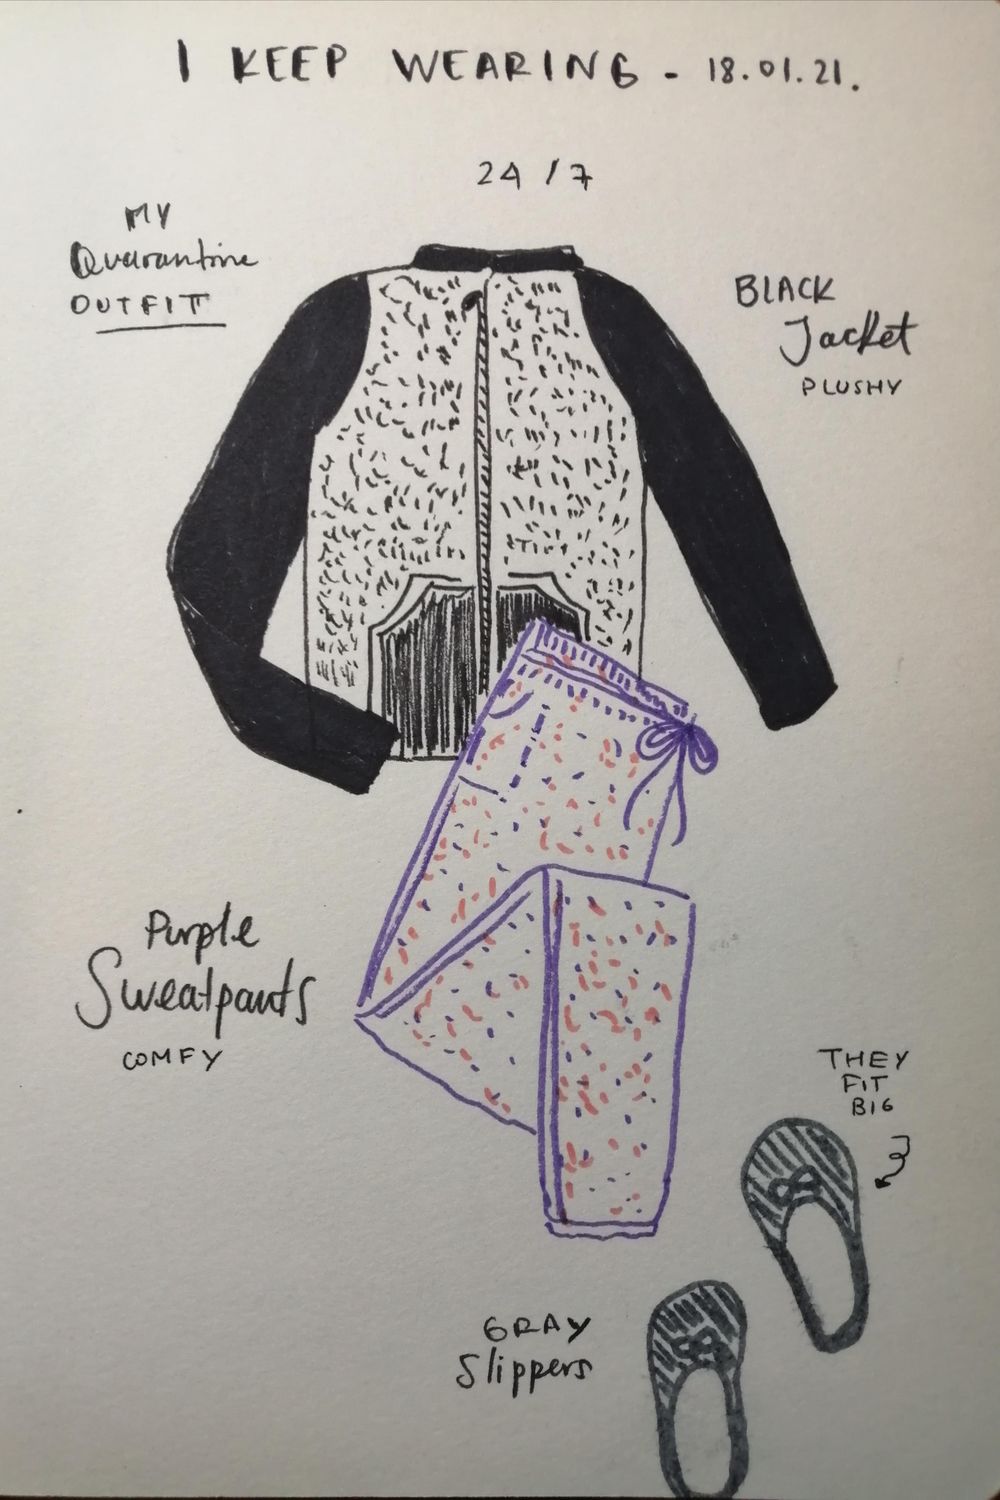 I KEEP WEARING - 18.01.21.
24/7
MY
Quarantine
OUTFIT
BLACK
Jacket
PLUSHY
Purple
Sweatpants
COMFY
THEY
FIT
BIG
GRAY
Slippers